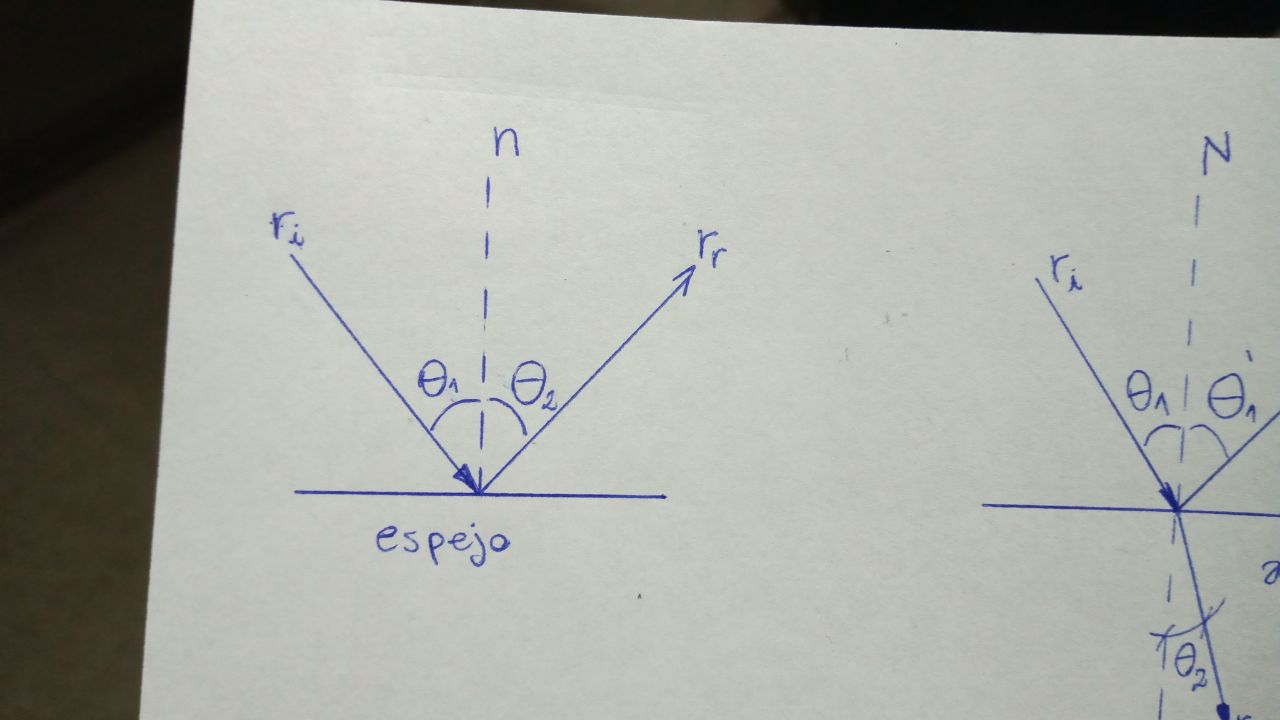 n
rᵢ
rᵣ
θ₁ θ₂
espejo
N
rᵢ
θ₁ θ₁'
θ₂